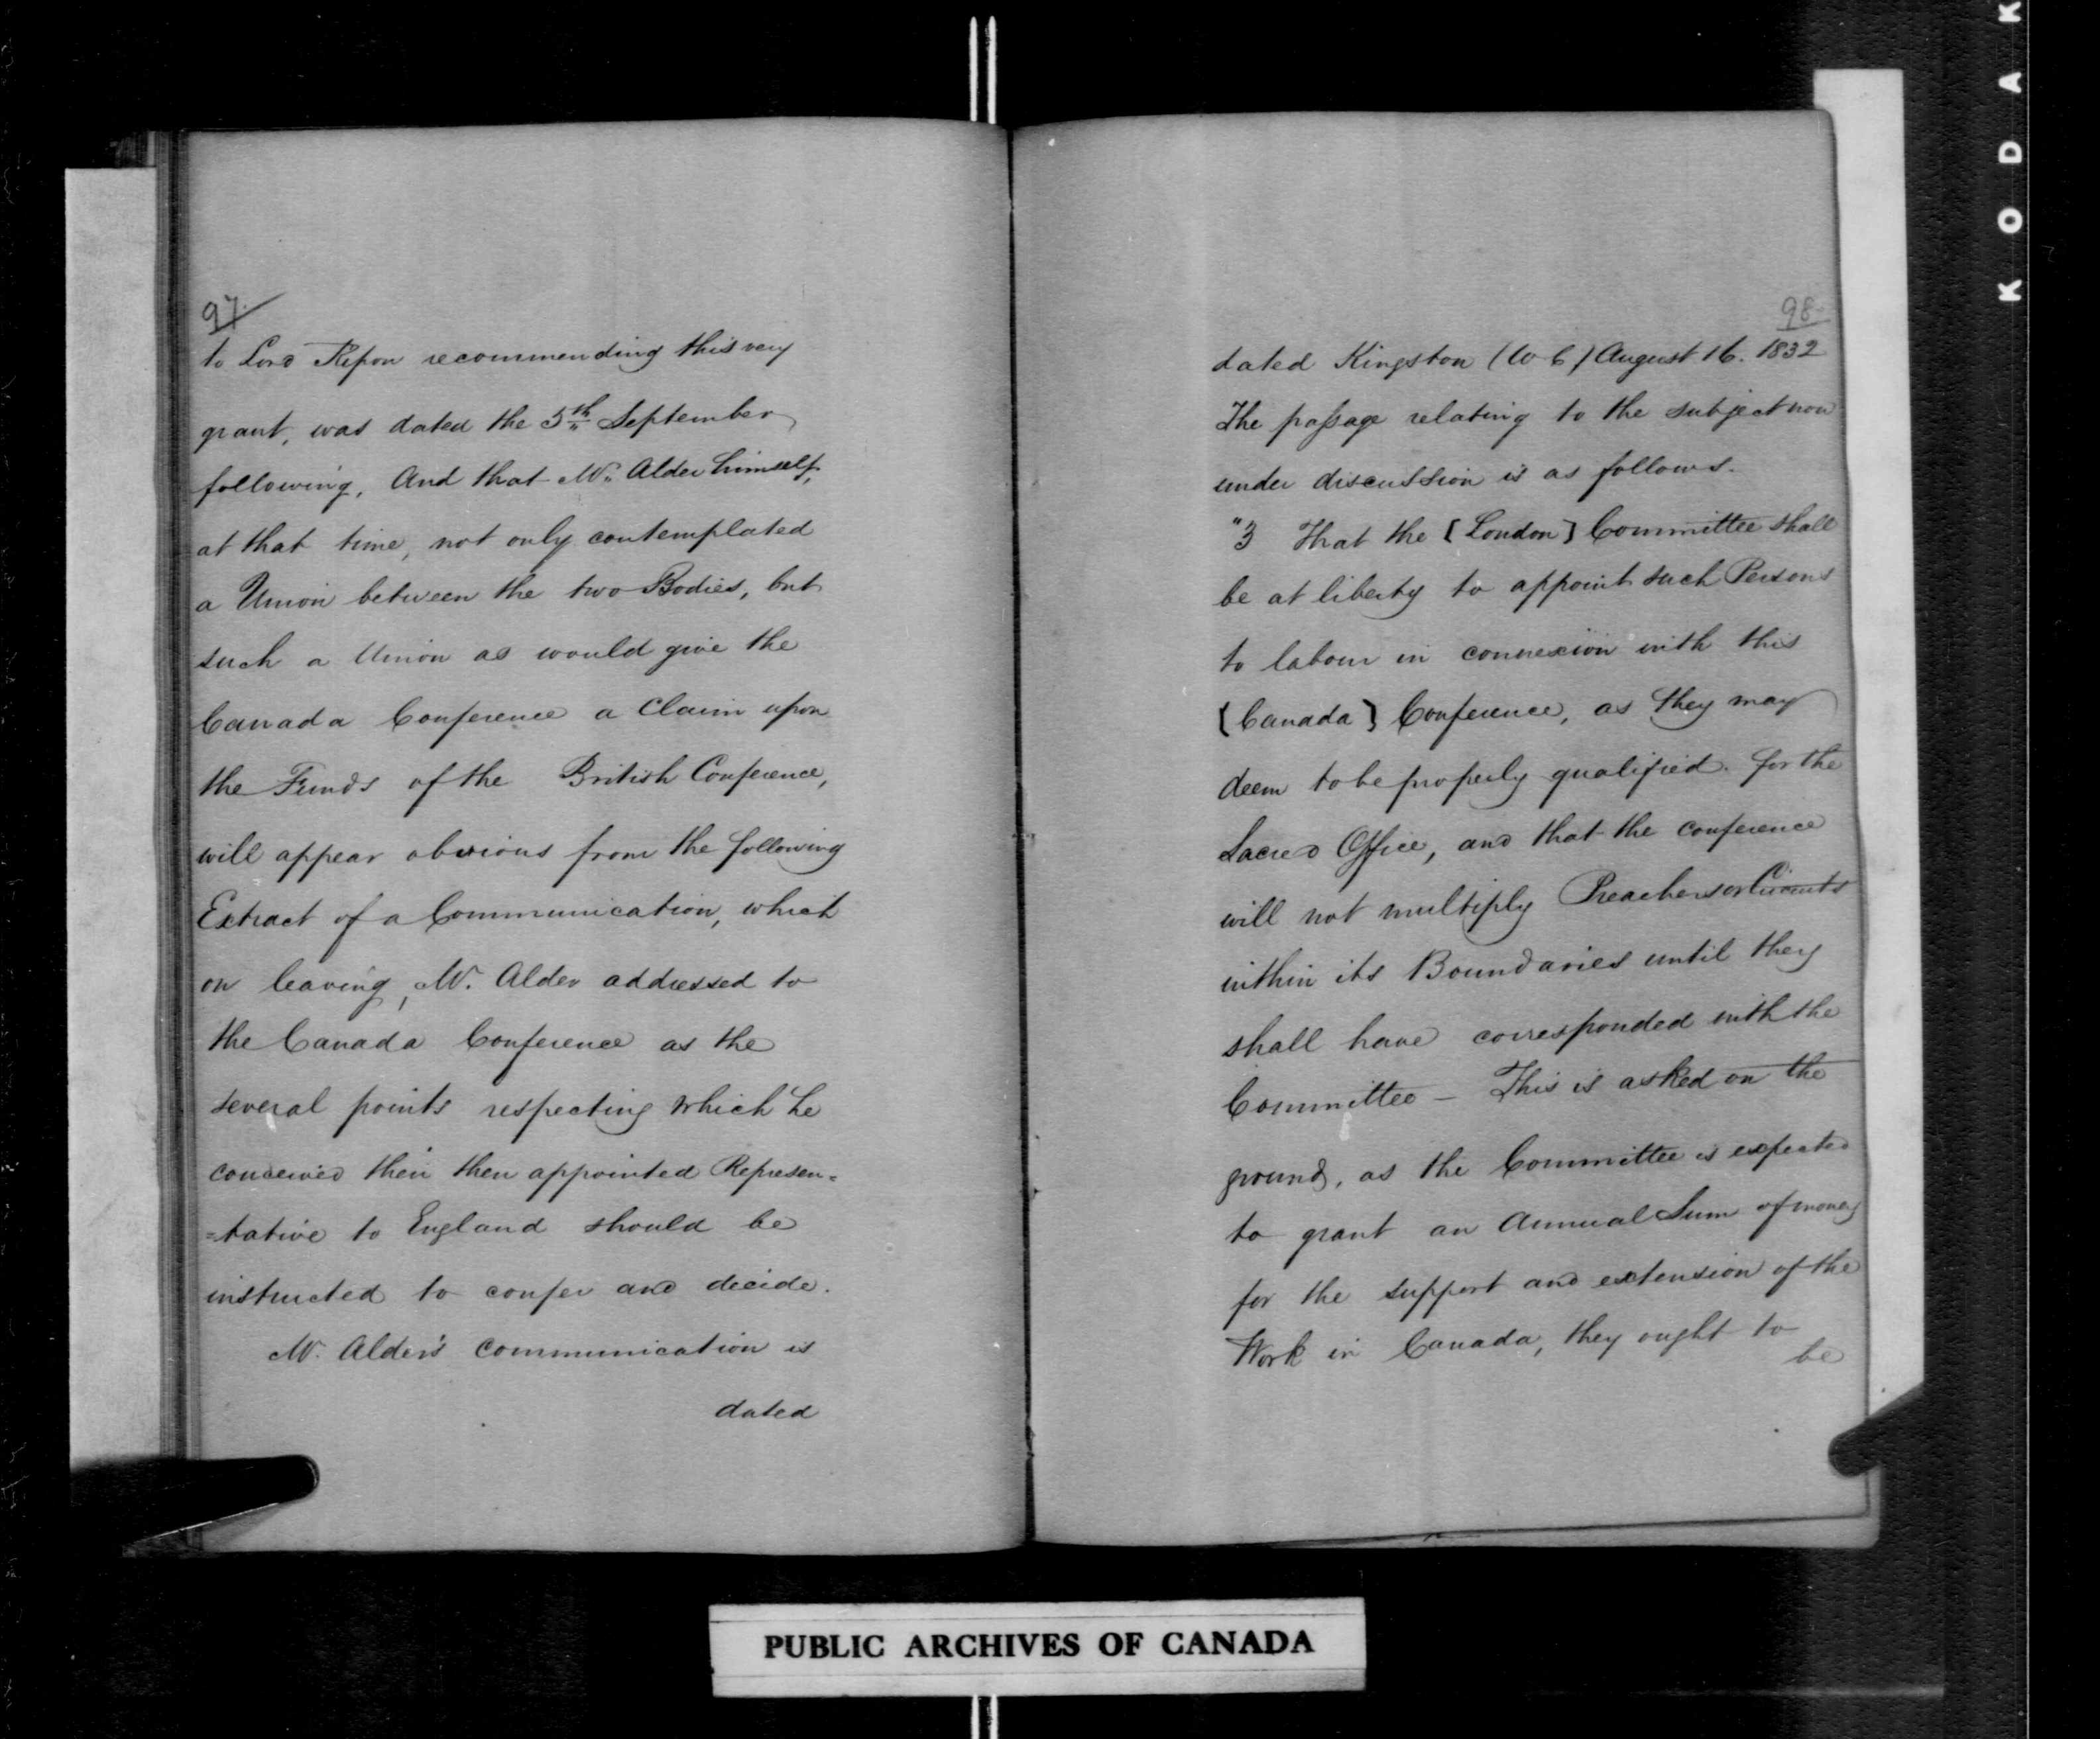 97
to Lord Ripon recommending this very
grant, was dated the 5th September
following, And that Mr. Alder himself,
at that time, not only contemplated
a Union between the two Bodies, but
such a Union as would give the
Canada Conference a Claim upon
the Funds of the British Conference,
will appear obvious from the following
Extract of a Communication, which
on leaving, Mr. Alder addressed to
the Canada Conference as the
several points respecting which he
conceived their then appointed Represen=
=tative to England should be
instructed to confer and decide.
Mr. Alder's communication is
dated
98
dated Kingston (U C) August 16. 1832
The passage relating to the subject now
under discussion is as follows.
"3 That the [London] Committee shall
be at liberty to appoint such Persons
to labour in connexion with this
[Canada] Conference, as they may
deem to be properly qualified for the
Sacred Office, and that the conference
will not multiply Preachers or Circuits
within its Boundaries until they
shall have corresponded with the
Committee – This is asked on the
ground, as the Committee is expected
to grant an Annual Sum of money
for the support and extension of the
Work in Canada, they ought to
be
PUBLIC ARCHIVES OF CANADA
KODAK